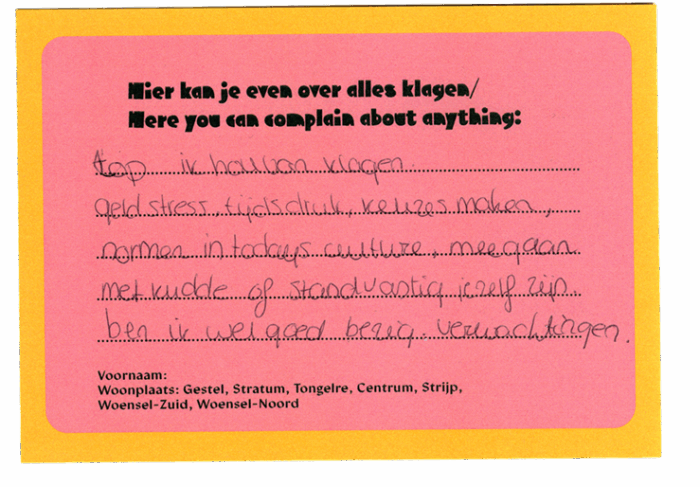 Hier kan je even over alles klagen/
Here you can complain about anything:
top ik hou van klagen.
geld stress, tijdsdruk, keuzes maken,
normen in todays culture, meegaan
met kudde of standvastig jezelf zijn.
ben ik wel goed bezig. verwachtingen.
Voornaam:
Woonplaats: Gestel, Stratum, Tongelre, Centrum, Strijp,
Woensel-Zuid, Woensel-Noord